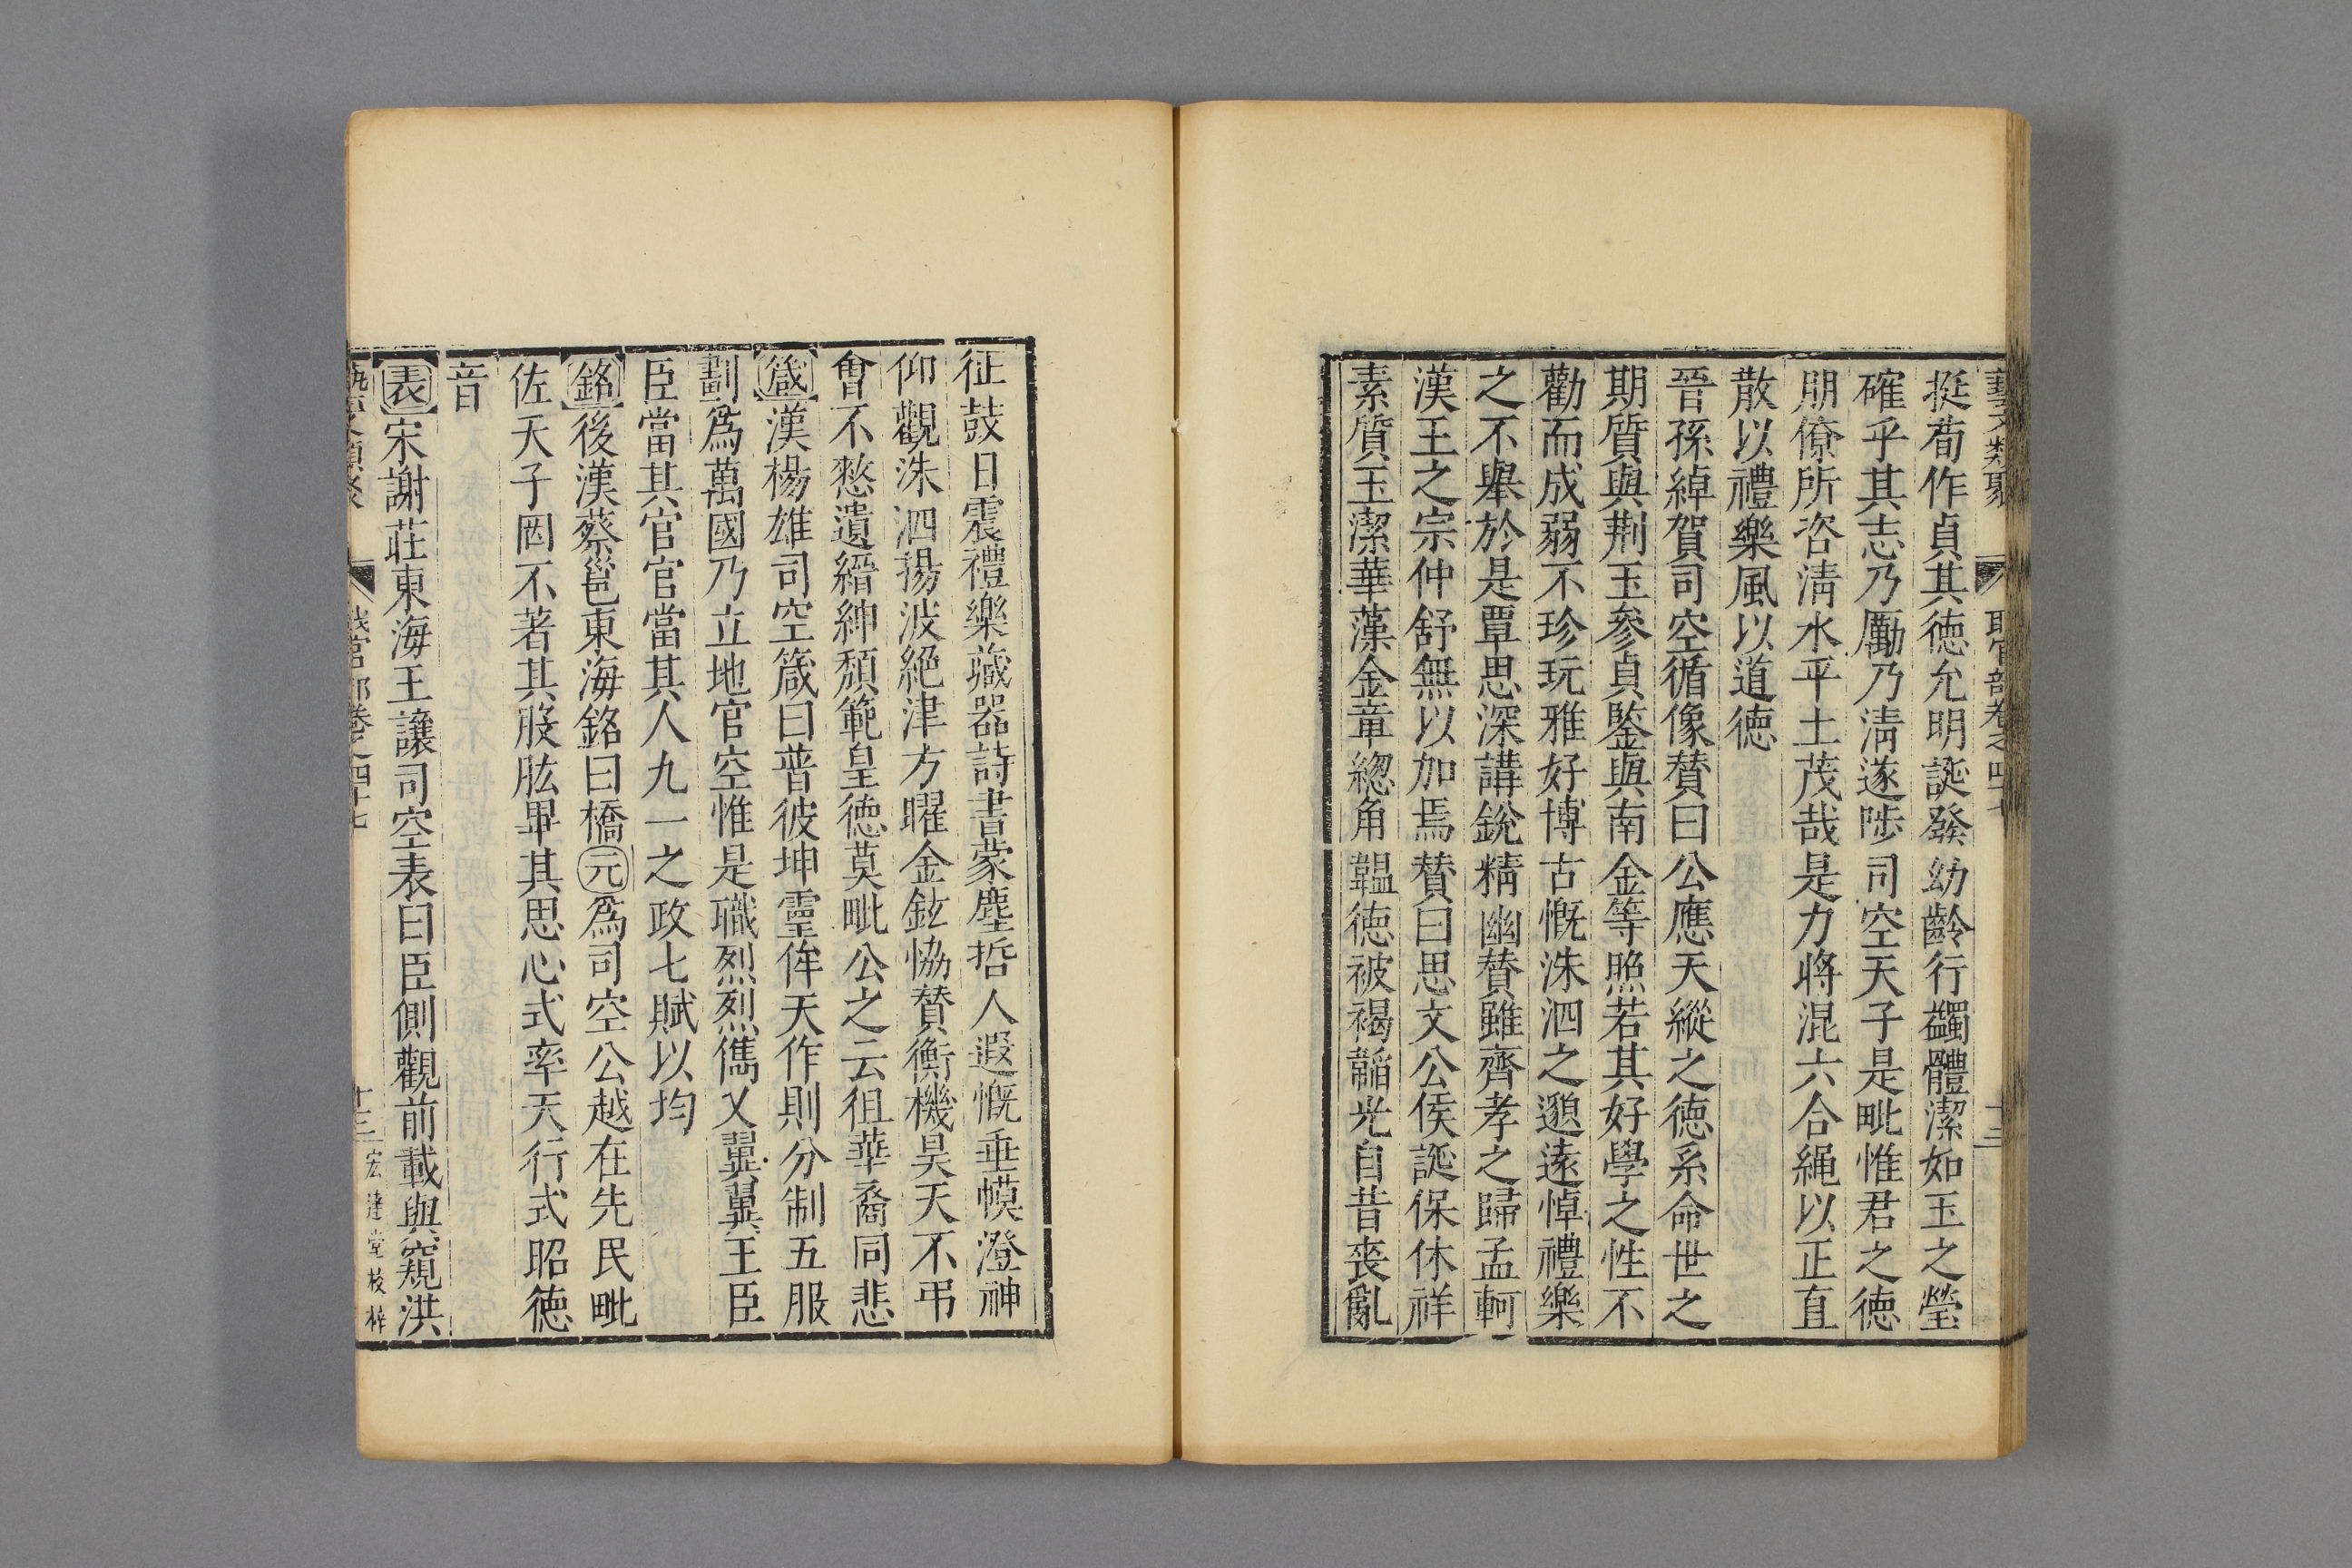 藝文類聚 職官部卷之四十七 十三
挺荀作貞其徳允明誕發幼齡行蠲體潔如玉之瑩
確乎其志乃勵乃淸遂陟司空天子是毗惟君之徳
朋僚所咨淸水平土茂哉是力將混六合繩以正直
散以禮樂風以道徳
晉孫綽賀司空循像贊曰公應天縱之徳系命世之
期質與荆玉參貞鑒與南金等照若其好學之性不
勸而成弱不珍玩雅好博古慨洙泗之邈遠悼禮樂
之不舉於是覃思深講銳精幽贊雖齊孝之歸孟軻
漢王之宗仲舒無以加焉贊曰思文公侯誕保休祥
素質玉潔華藻金章緫角韞徳被褐韜光自昔喪亂
征鼓日震禮樂藏器詩書蒙塵哲人遐慨垂幙澄神
仰觀洙泗揚波絕津方曜金鉉恊贊衡機昊天不弔
曾不憗遺縉紳頹範皇徳莫毗公之云徂華裔同悲
箴漢楊雄司空箴曰普彼坤靈侔天作則分制五服
劃爲萬國乃立地官空惟是職烈烈儁乂翼翼王臣
臣當其官官當其人九一之政七賦以均
銘後漢蔡邕東海銘曰橋元爲司空公越在先民毗
佐天子罔不著其股肱畢其思心式率天行式昭徳
音
表宋謝莊東海王讓司空表曰臣側觀前載與窺洪
藝文類聚 職官部卷之四十七 十三 宏達堂校梓